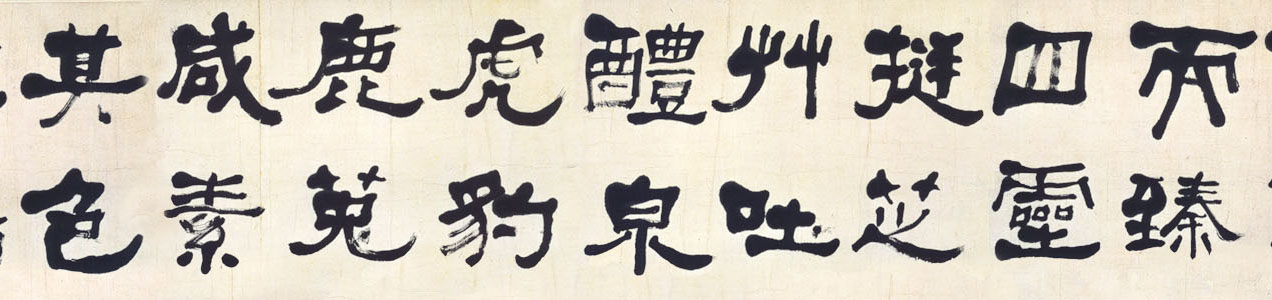 而臻
四靈
挺芝
艸吐
醴泉
虎豹
鹿菟
咸素
其色